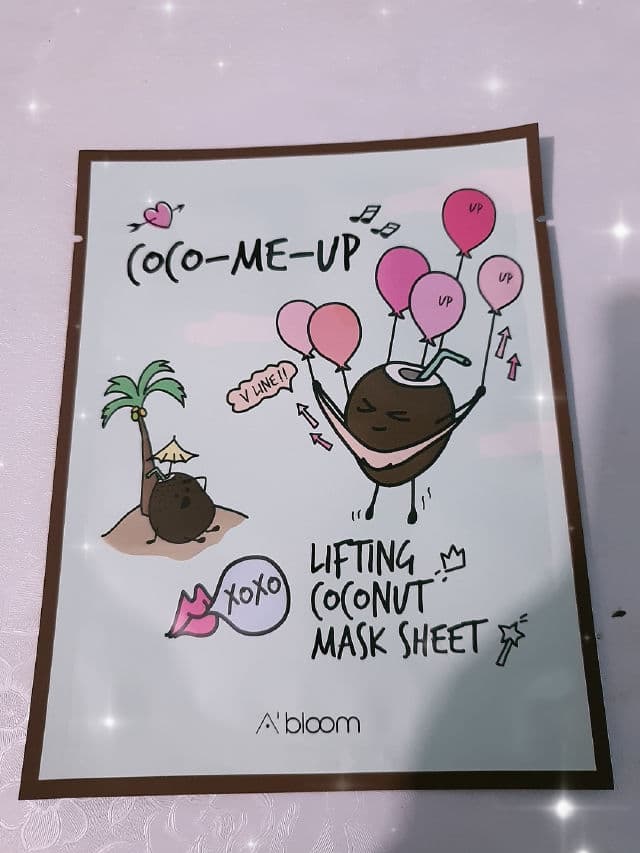 COCO-ME-UP
UP
UP
UP
V LINE!!
XOXO
LIFTING
COCONUT
MASK SHEET
A'bloom